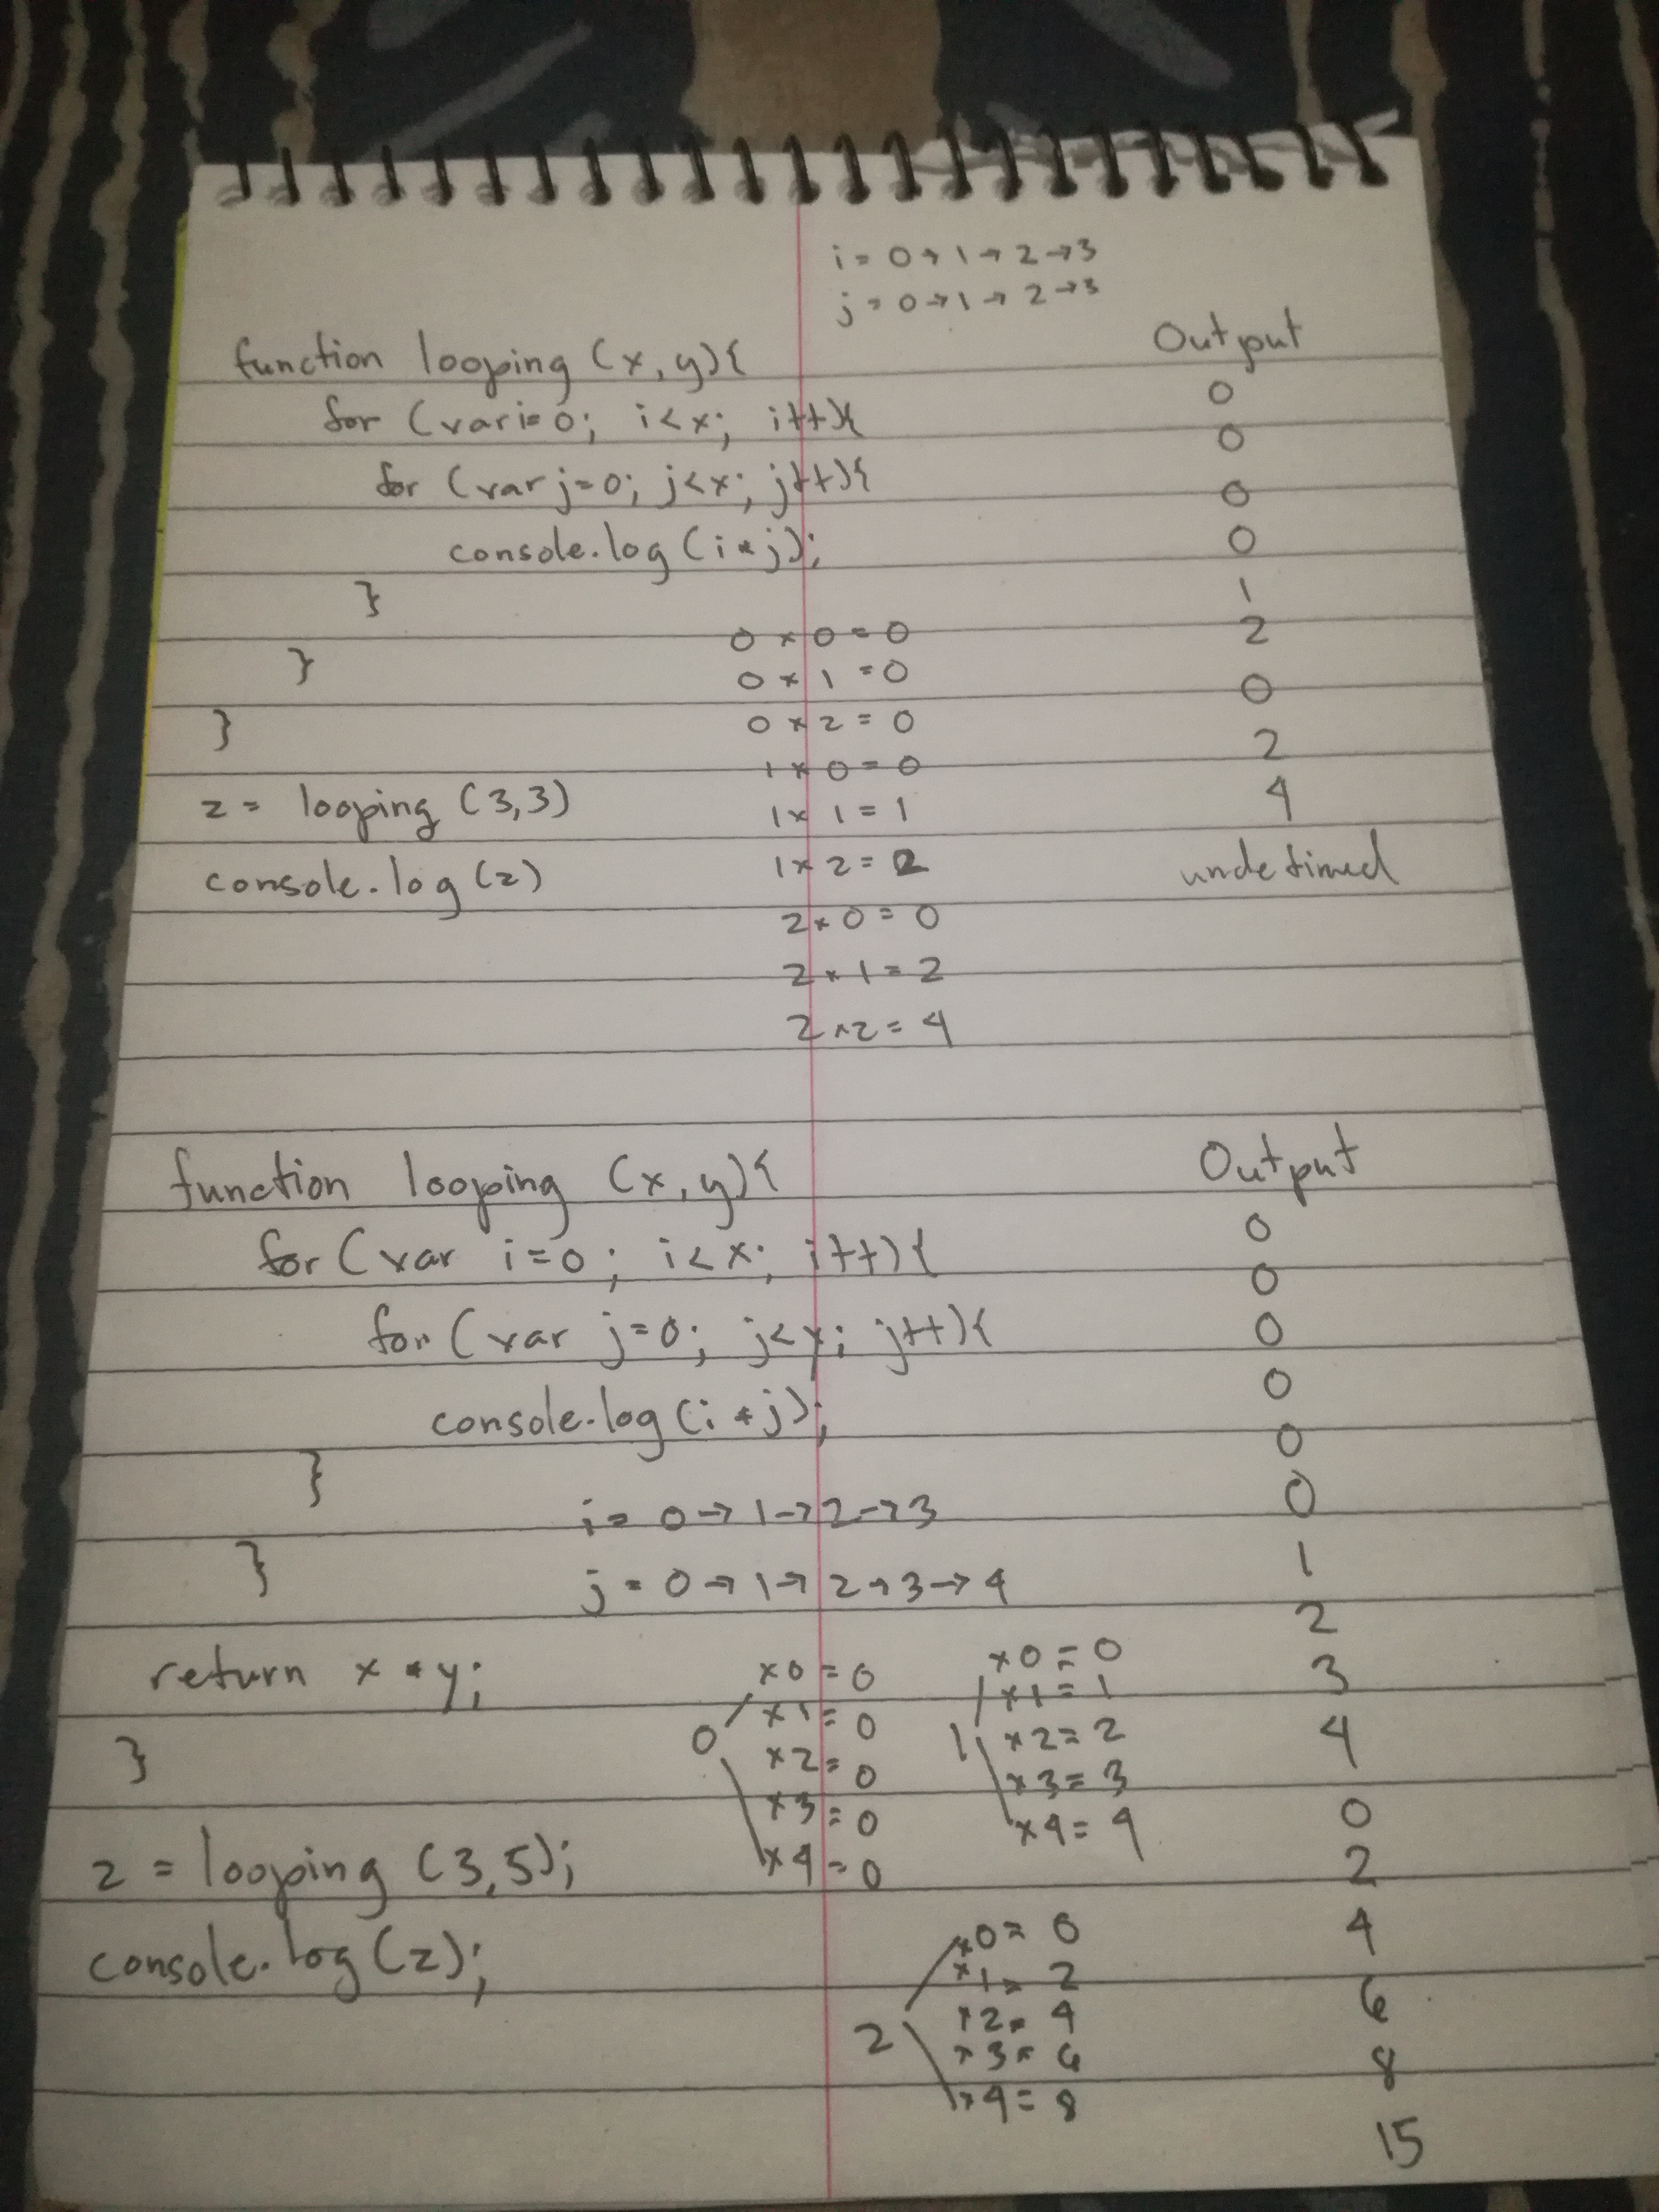 i = 0 → 1 → 2 → 3
j = 0 → 1 → 2 → 3
function looping (x, y){
for (var i= 0; i < x; i++){
for (var j=0; j<x; j++){
console.log (i * j);
}
}
}
z = looping (3,3)
console.log (z)
0 x 0 = 0
0 x 1 = 0
0 x 2 = 0
1 x 0 = 0
1 x 1 = 1
1 x 2 = 2
2 x 0 = 0
2 x 1 = 2
2 x 2 = 4
Output
0
0
0
0
1
2
0
2
4
undefined
function looping (x, y){
for (var i=0; i<x; i++){
for (var j=0; j<y; j++){
console.log (i * j);
}
}
return x * y;
}
z = looping (3,5);
console.log (z);
i = 0 → 1 → 2 → 3
j = 0 → 1 → 2 → 3 → 4
0
x0 = 0
x1 = 0
x2 = 0
x3 = 0
x4 = 0
1
x0 = 0
x1 = 1
x2 = 2
x3 = 3
x4 = 4
2
x0 = 0
x1 = 2
x2 = 4
x3 = 6
x4 = 8
Output
0
0
0
0
0
0
1
2
3
4
0
2
4
6
8
15